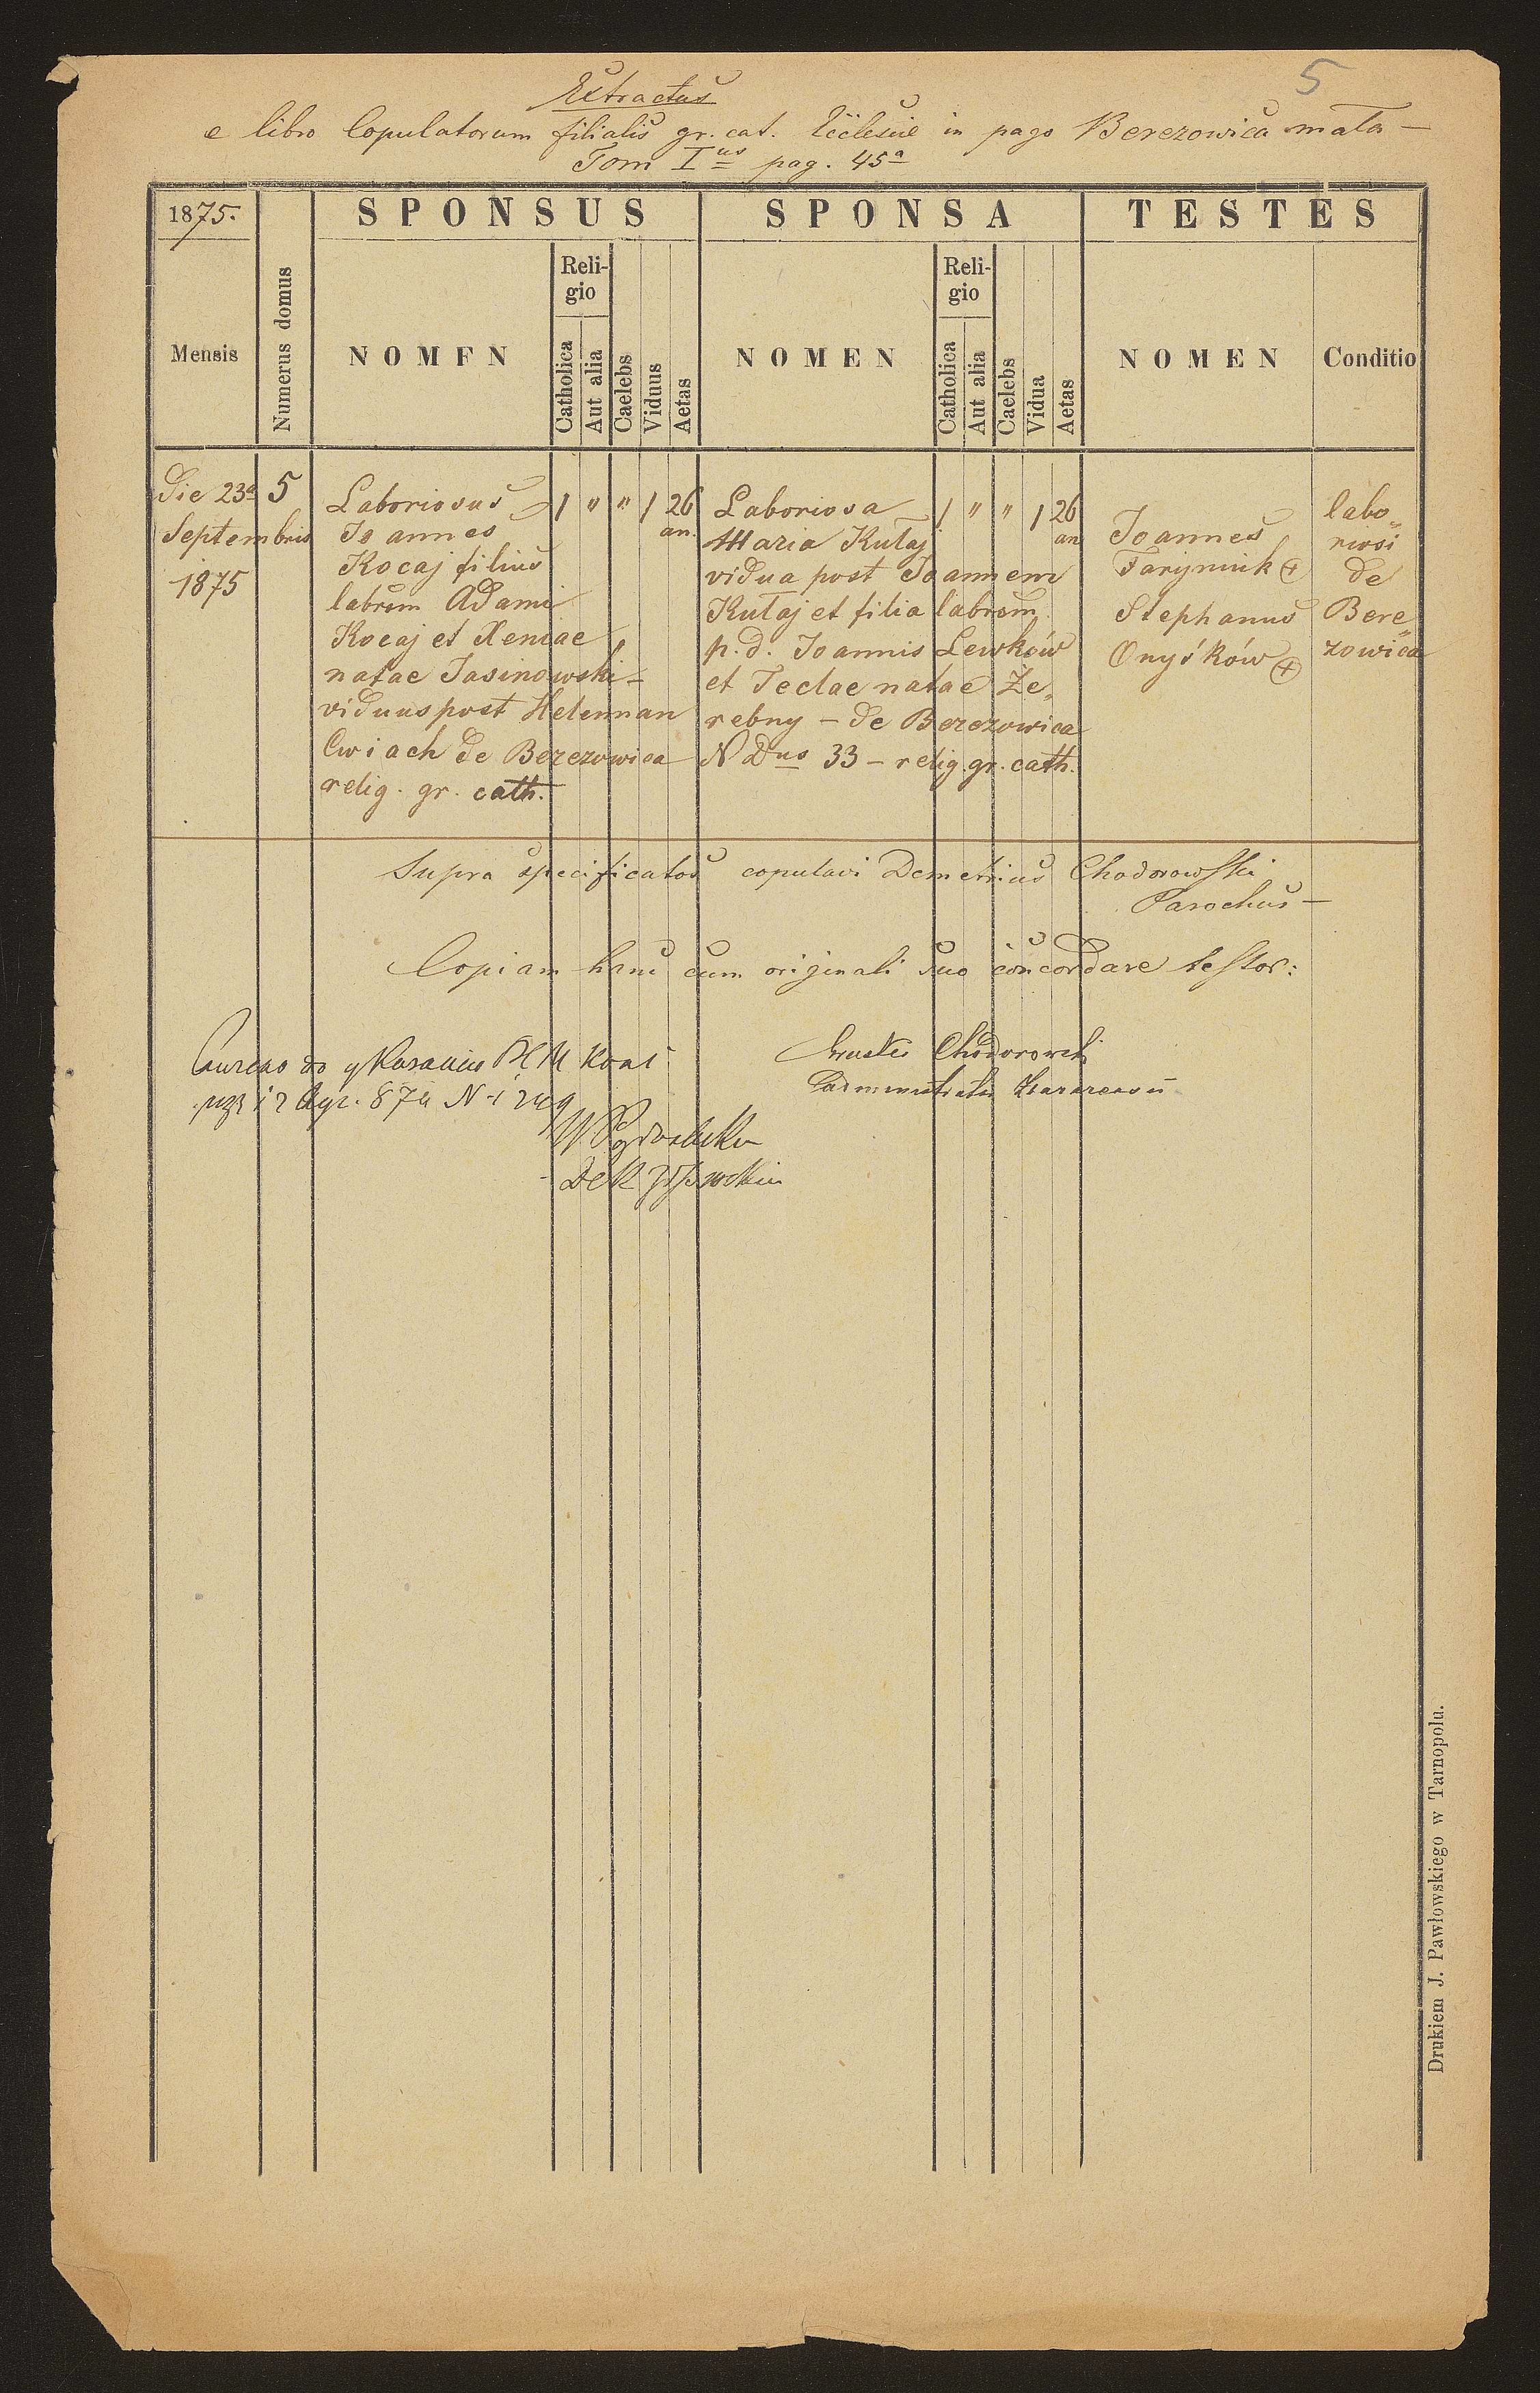 5
Extractus
e libro Copulatorum filialis gr. cat. Ecclesiae in pago Berezowica mała —
Tom I us pag. 45a
1875.
SPONSUS
SPONSA
TESTES
Mensis
Numerus domus
NOMEN
Reli-
gio
Catholica
Aut alia
Caelebs
Viduus
Aetas
NOMEN
Reli-
gio
Catholica
Aut alia
Caelebs
Vidua
Aetas
NOMEN
Conditio
Die 23a
Septembris
1875
5
Laboriosus
Joannes
Kocaj filius
labrsm Adami
Kocaj et Xeniae
natae Jasinowski =
viduus post Helennan
Cwiach de Berezowica
relig. gr. cath.
1 " " 1 26
an.
Laboriosa
Maria Kułaj
vidua post Joannem
Kułaj et filia labrsm
p. d. Joannis Lewków
et Teclae natae Że„
rebny — de Berezowica
N Dus 33 — relig. gr. cath.
1 " " 1 26
an
Joannes
Faryniuk +
Stephanus
Onyśków +
labo„
riosi
de
Bere„
zowica
Supra specificatos copulavi Demetrius Chodorowski
Parochus —
Copiam hanc cum originali suo concordare testor:
Chodorowski
Drukiem J. Pawłowskiego w Tarnopolu.